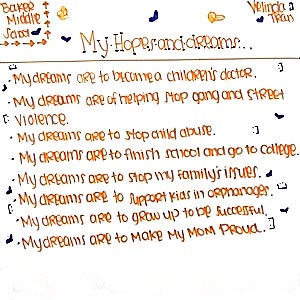 Baker
Middle
School
Velinda
Tran
My Hopes and dreams...
• My dreams are to become a children's doctor.
• My dreams are of helping stop gang and street
violence.
• My dreams are to stop child abuse.
• My dreams are to finish school and go to college.
• My dreams are to stop my family's issues.
• My dreams are to support kids in orphanages.
• My dreams are to grow up to be successful.
• My dreams are to make my mom proud.